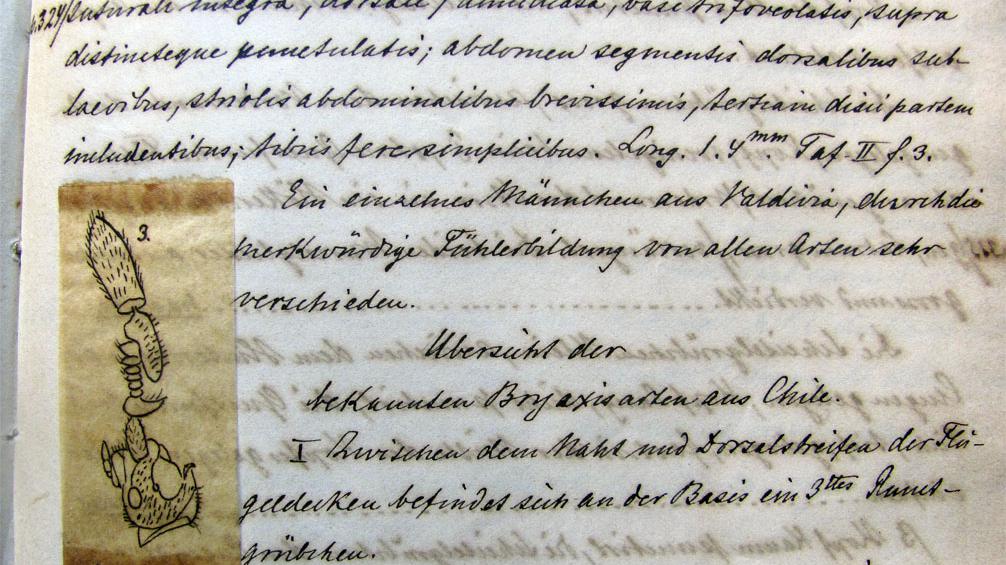 suturali integra, dorsali dimidiata, basi trifoveolatis, supra
distincteque punctulatis; abdomen segmentis dorsalibus sub-
laevibus, striolis abdominalibus brevissimis, tertiam disci partem
includentibus; tibiis fere simplicibus. Long. 1.4 mm. Taf. II f. 3.
Ein einzelnes Männchen aus Valdivia, durch die
merkwürdige Fühlerbildung von allen Arten sehr
verschieden.
3.
Übersicht der
bekannten Bryaxisarten aus Chile.
I Zwischen dem Naht und Dorsalstreifen der Flü-
geldecken befindet sich an der Basis ein 3ttes Punct-
grübchen.